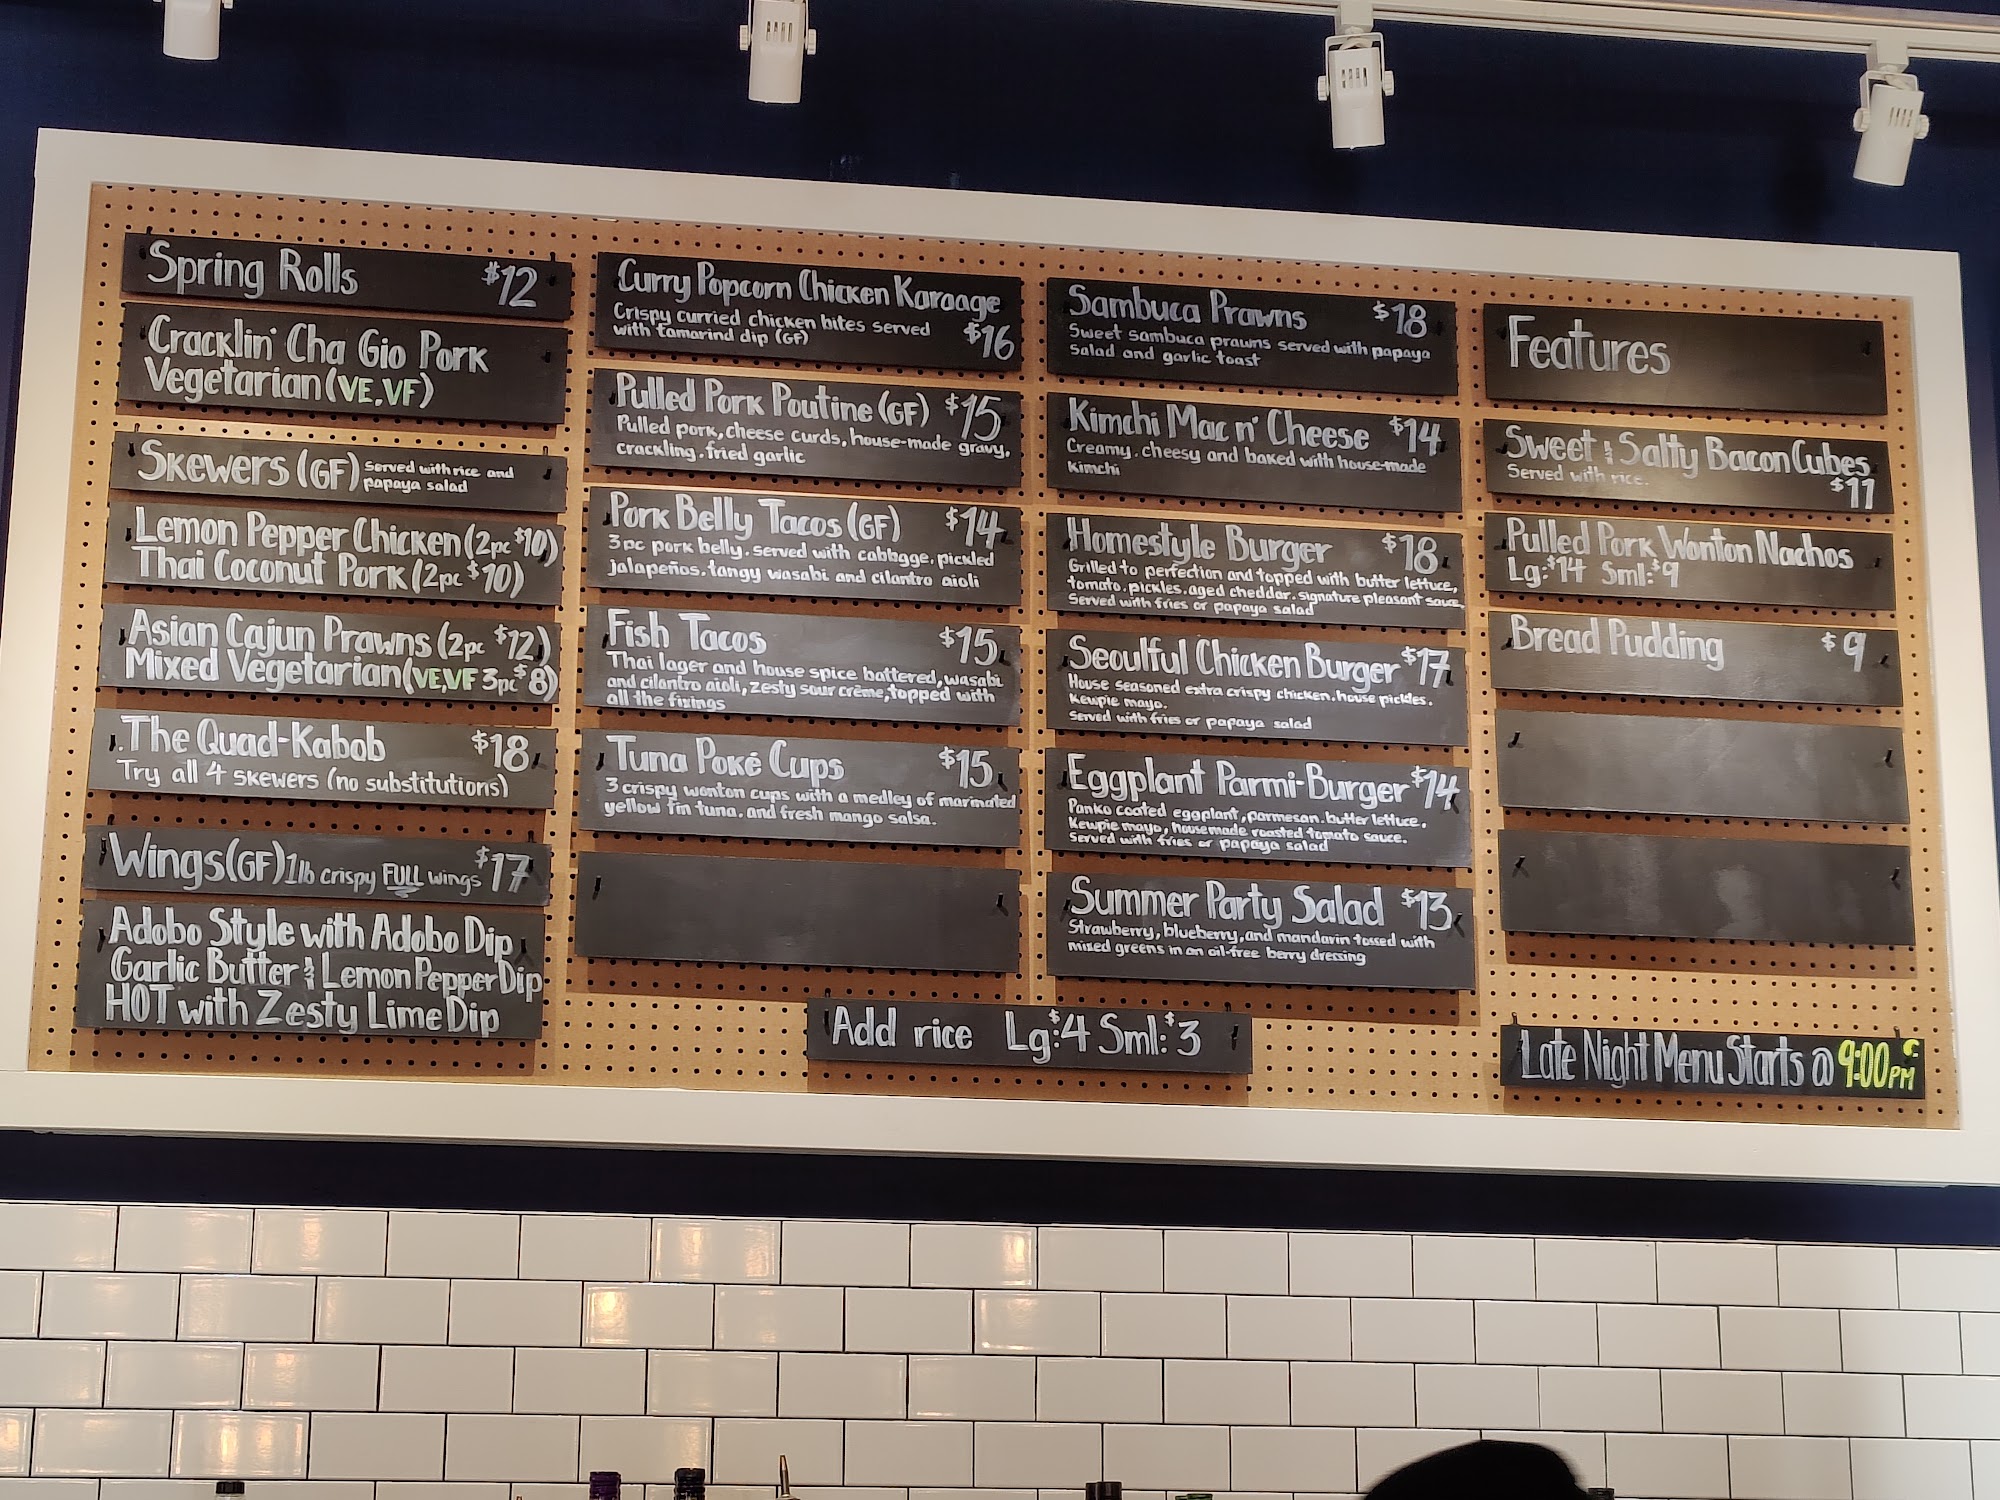 Spring Rolls $12
Cracklin' Cha Gio Pork
Vegetarian (VE, VF)
Skewers (GF) served with rice and
papaya salad
Lemon Pepper Chicken (2pc $10)
Thai Coconut Pork (2pc $10)
Asian Cajun Prawns (2pc $12)
Mixed Vegetarian (VE, VF 3pc $8)
The Quad-Kabob $18
Try all 4 skewers (no substitutions)
Wings (GF) 1lb crispy FULL wings $17
Adobo Style with Adobo Dip
Garlic Butter & Lemon Pepper Dip
HOT with Zesty Lime Dip
Curry Popcorn Chicken Karaage
Crispy curried chicken bites served
with tamarind dip (GF) $16
Pulled Pork Poutine (GF) $15
Pulled pork, cheese curds, house-made gravy,
crackling, fried garlic
Pork Belly Tacos (GF) $14
3pc pork belly, served with cabbgge, pickled
jalapeños, tangy wasabi and cilantro aioli
Fish Tacos $15
Thai lager and house spice battered, wasabi
and cilantro aioli, zesty sour crème, topped with
all the fixings
Tuna Poké Cups $15
3 crispy wonton cups with a medley of marinated
yellow fin tuna, and fresh mango salsa.
Sambuca Prawns $18
Sweet sambuca prawns served with papaya
salad and garlic toast
Kimchi Mac n' Cheese $14
Creamy, cheesy and baked with house-made
kimchi
Homestyle Burger $18
Grilled to perfection and topped with butter lettuce,
tomato, pickles, aged cheddar, signature pleasant sauce
Served with fries or papaya salad
Seoulful Chicken Burger $17
House seasoned extra crispy chicken, house pickles,
Kewpie mayo.
Served with fries or papaya salad
Eggplant Parmi-Burger $14
Panko coated eggplant, parmesan, butter lettuce,
Kewpie mayo, housemade roasted tomato sauce.
Served with fries or papaya salad
Summer Party Salad $13
Strawberry, blueberry, and mandarin tossed with
mixed greens in an oil-free berry dressing
Features
Sweet & Salty Bacon Cubes
Served with rice. $11
Pulled Pork Wonton Nachos
Lg: $14 Sml: $9
Bread Pudding $9
Add rice Lg: $4 Sml: $3
Late Night Menu Starts @ 9:00PM